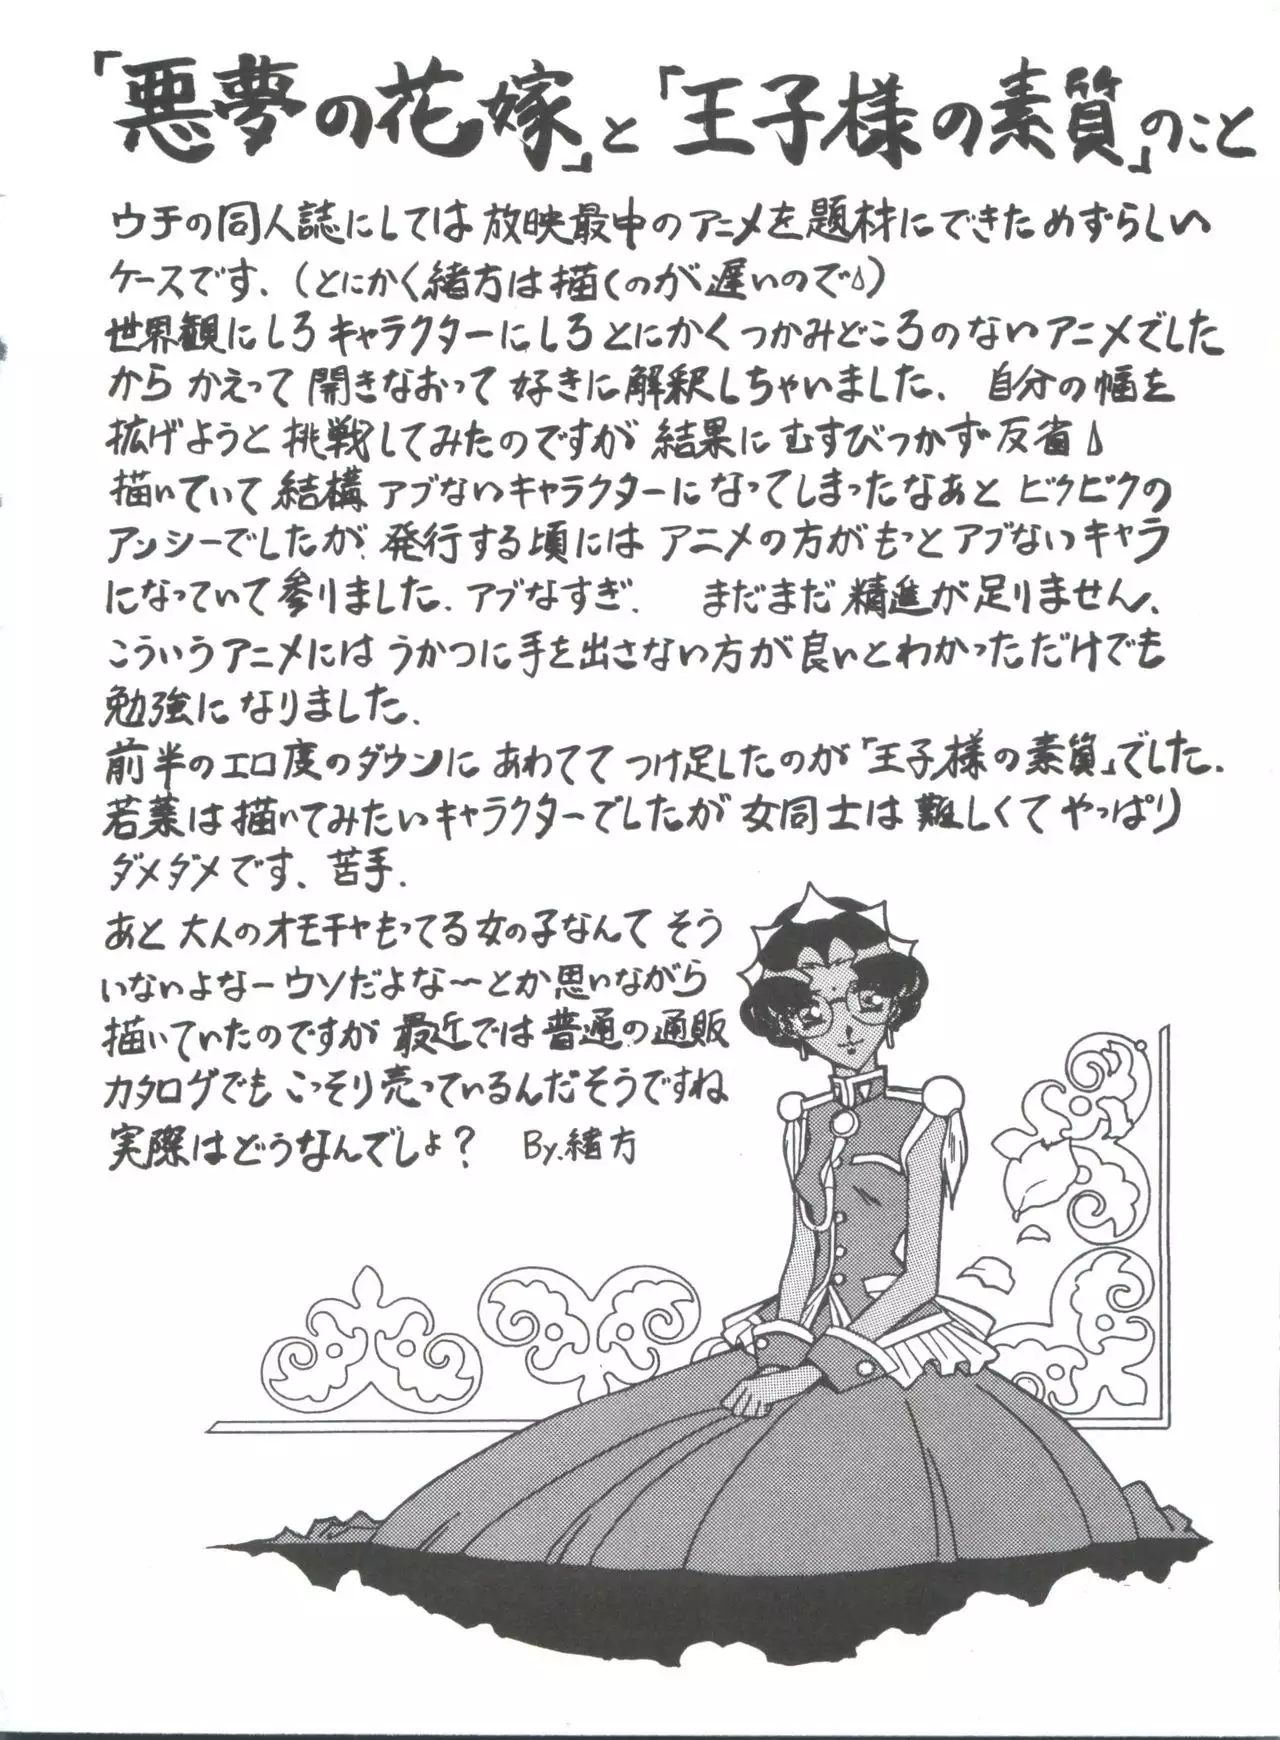 「悪夢の花嫁」と「王子様の素質」のこと
ウチの同人誌にしては放映最中のアニメを題材にできためずらしい
ケースです。(とにかく緒方は描くのが遅いので)
世界観にしろキャラクターにしろとにかくつかみどころのないアニメでした
からかえって開きなおって好きに解釈しちゃいました。自分の幅を
拡げようと挑戦してみたのですが結果にむすびつかず反省
描いていて結構アブないキャラクターになってしまったなあとビクビクの
アンシーでしたが、発行する頃にはアニメの方がもっとアブないキャラ
になっていて参りました。アブなすぎ。まだまだ精進が足りません。
こういうアニメにはうかつに手を出さない方が良いとわかっただけでも
勉強になりました。
前半のエロ度のダウンにあわててつけ足したのが「王子様の素質」でした。
若葉は描いてみたいキャラクターでしたが女同士は難しくてやっぱり
ダメダメです、苦手。
あと大人のオモチャもってる女の子なんてそう
いないよなーウソだよな〜とか思いながら
描いていたのですが最近では普通の通販
カタログでもこっそり売っているんだそうですね
実際はどうなんでしょ? By.緒方